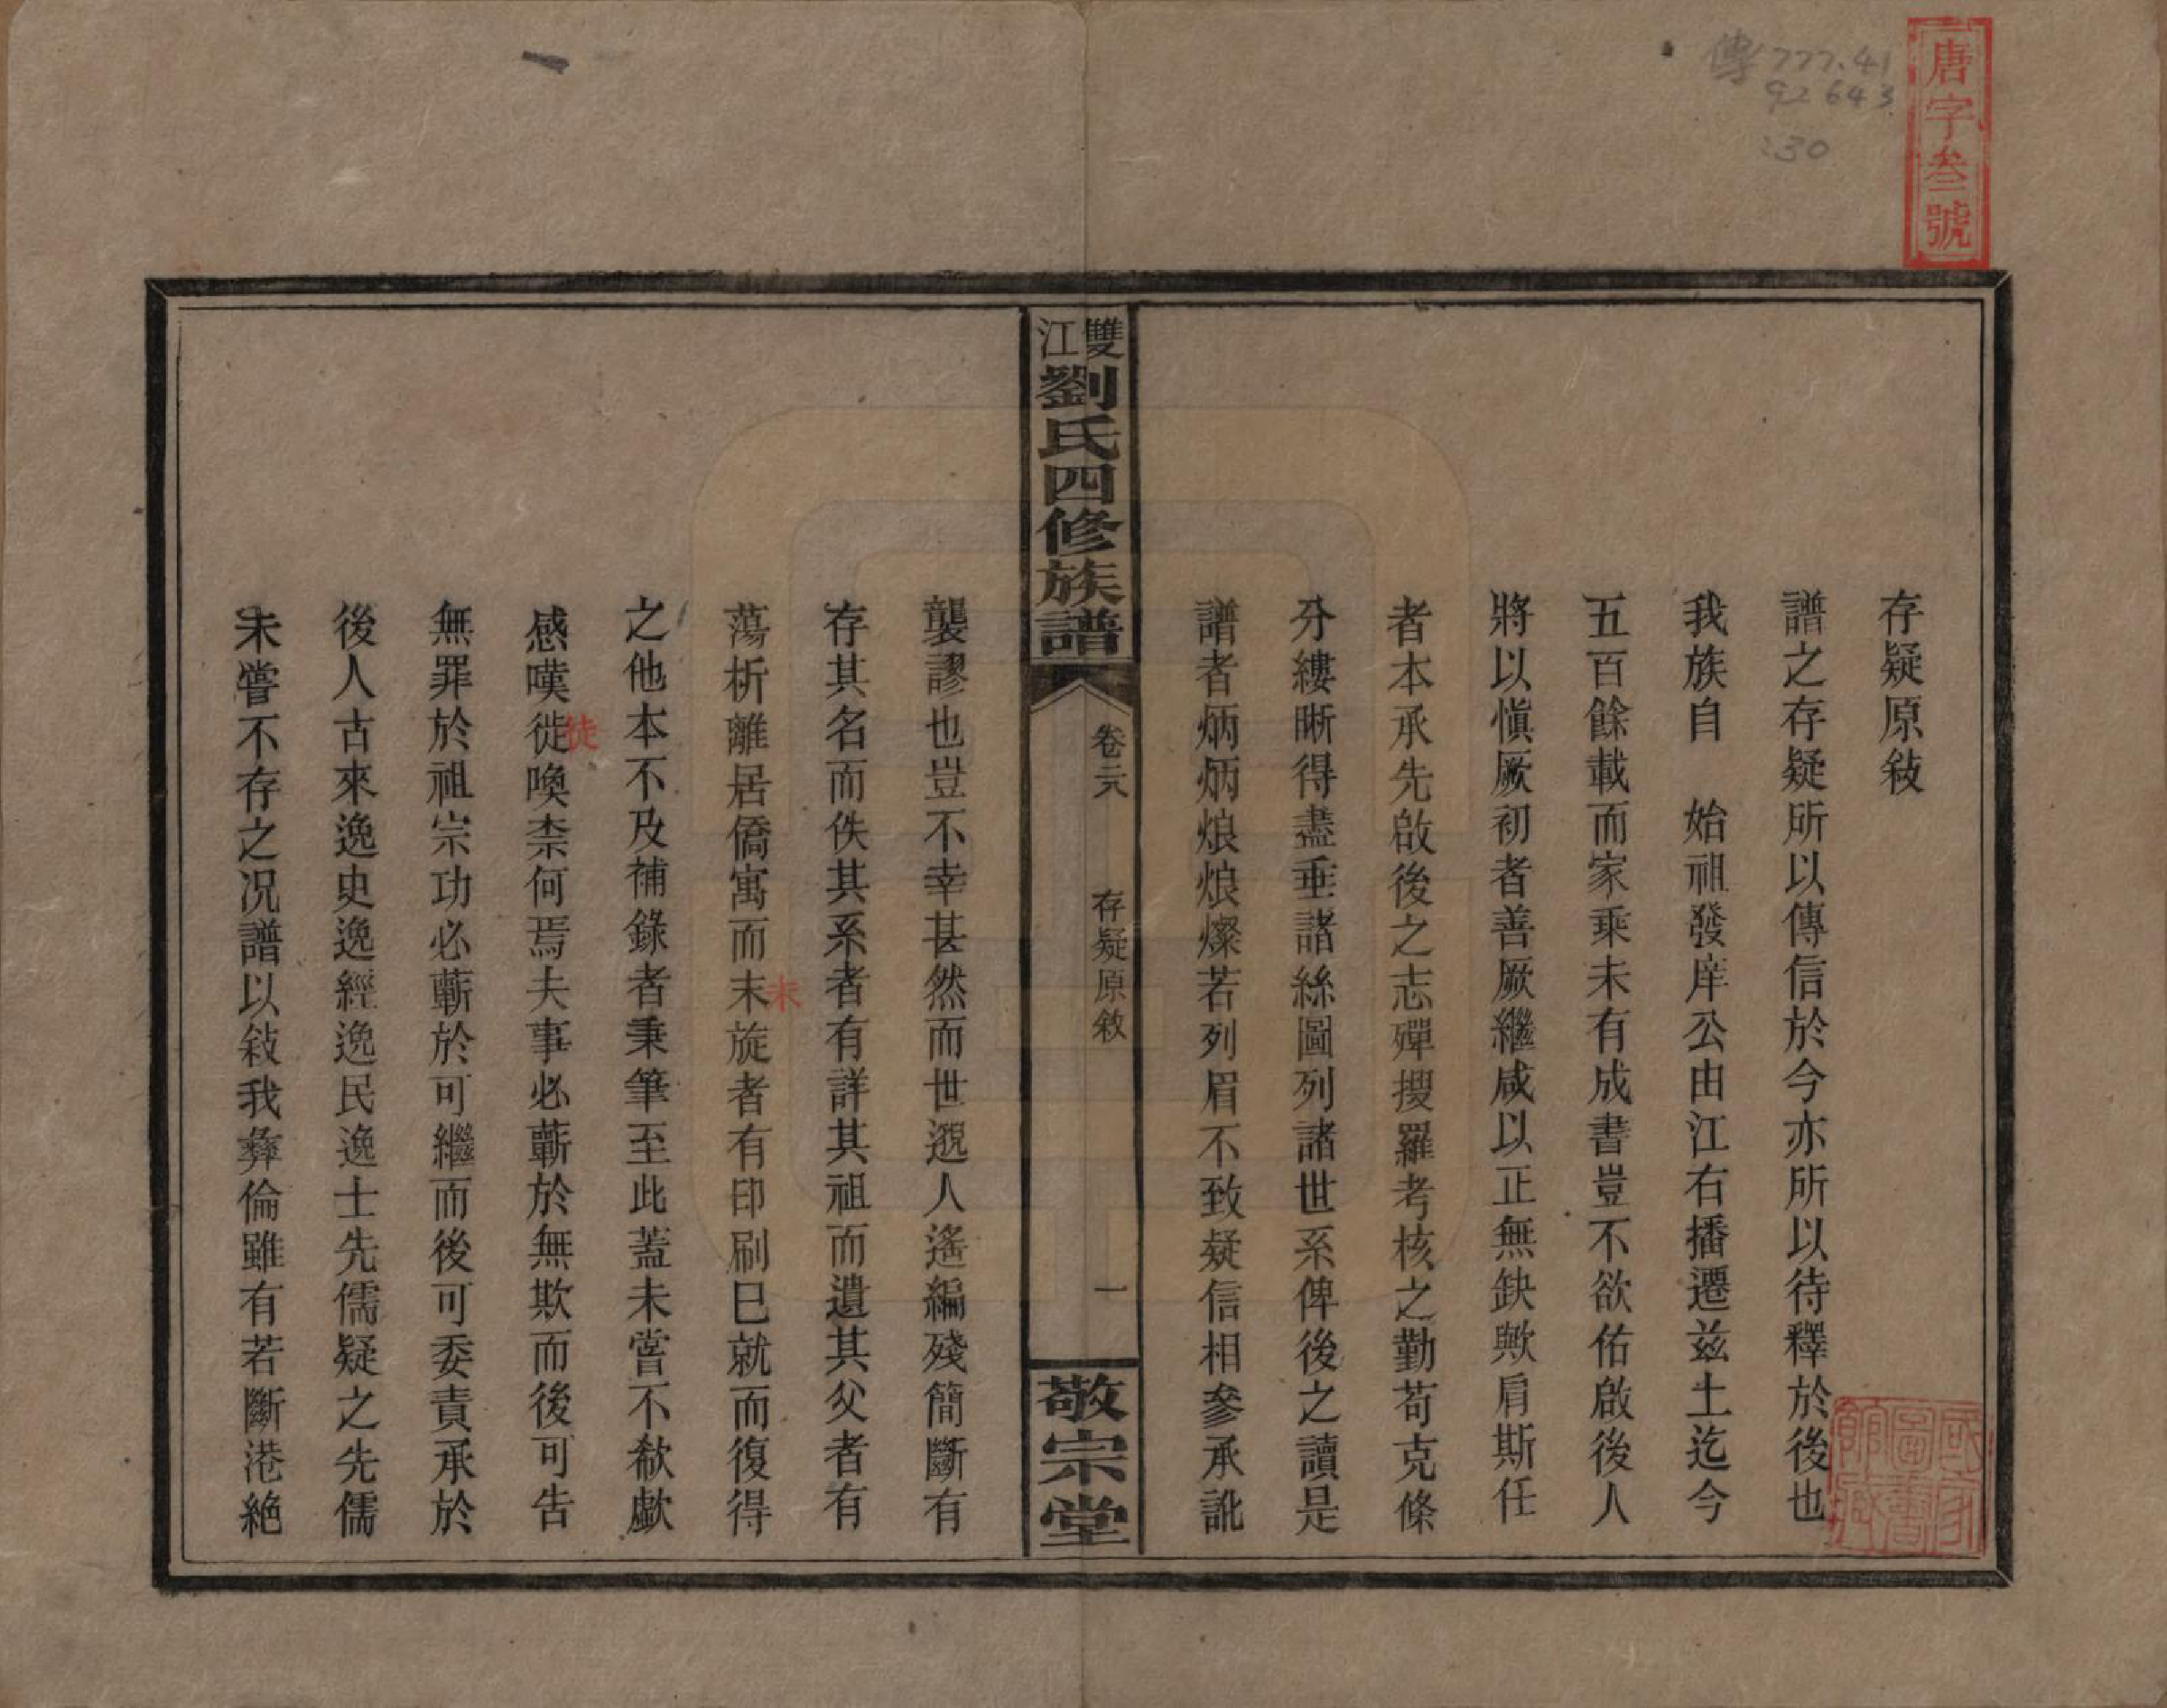 唐字叁號
傳777.41
92643
:30
存疑原敍
譜之存疑所以傳信於今亦所以待釋於後也
我族自　始祖發庠公由江右播遷兹土迄今
五百餘載而家乘未有成書豈不欲佑啟後人
將以慎厥初者善厥繼咸以正無缺歟肩斯任
者本承先啟後之志殫搜羅考核之勤苟克條
分縷晰得盡垂諸絲圖列諸世系俾後之讀是
譜者炳炳烺烺燦若列眉不致疑信相參承訛
雙江劉氏四修族譜
卷元
存疑原敘
一
敬宗堂
襲謬也豈不幸甚然而世遐人遙編殘簡斷有
存其名而佚其系者有詳其祖而遺其父者有
蕩析離居僑寓而末旋者有印刷巳就而復得
未
之他本不及補錄者秉筆至此蓋未嘗不欷歔
感嘆徙喚柰何焉夫事必蘄於無欺而後可告
徒
無罪於祖宗功必蘄於可繼而後可委責承於
後人古來逸史逸經逸民逸士先儒疑之先儒
未嘗不存之况譜以敍我彝倫雖有若斷港絕
國家圖書館藏